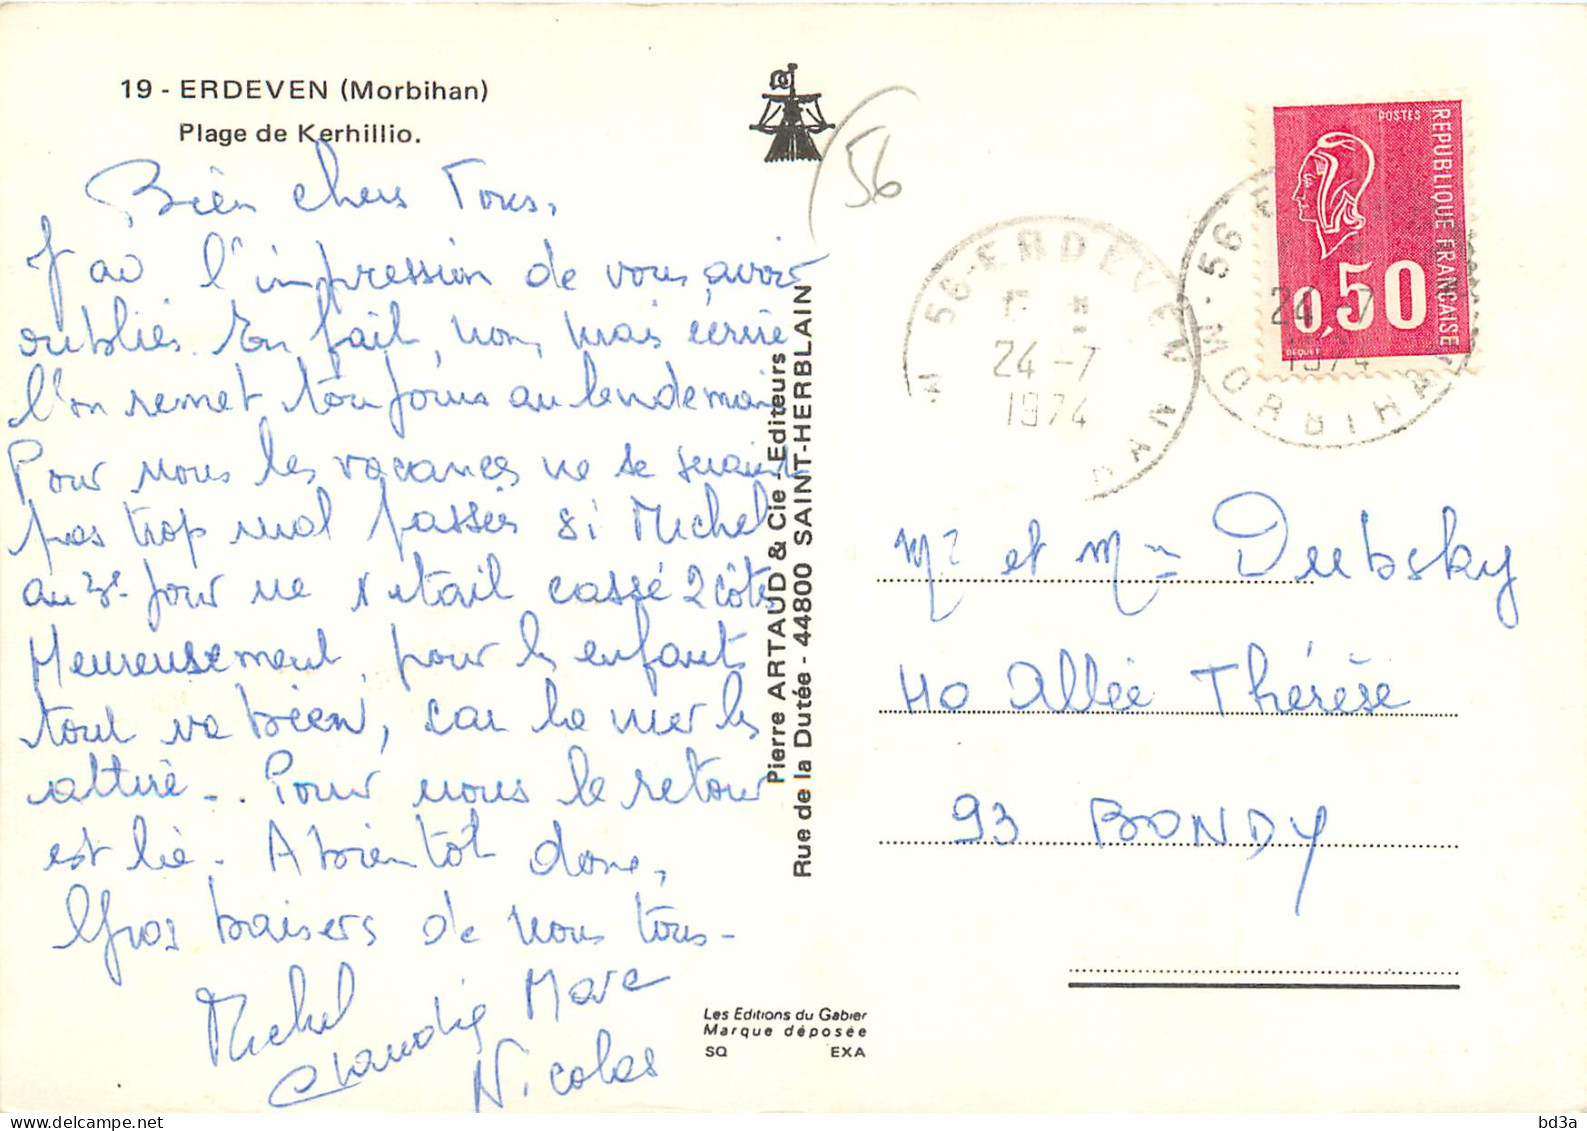 19 - ERDEVEN (Morbihan)
Plage de Kerhillio.
Bien chers Tous,
J'ai l'impression de vous avoir
oubliés. En fait, non, mais écrire
l'on remet toujours au lendemain
Pour nous les vacances ne se seraient
pas trop mal passées si Michel
au 3e jour ne s'etait cassé 2 côtes
Heureusement, pour les enfants
tout va bien, car la mer les
attire -. Pour nous le retour
est lié - A bientôt donc,
Gros baisers de nous tous -
Michel
Claudie Marc
Nicolas
Pierre ARTAUD & Cie - Editeurs
Rue de la Dutée - 44800 SAINT-HERBLAIN
Les Editions du Gabier
Marque déposée
SQ EXA
56
56 - ERDEVEN
24 -7
1974
POSTES
REPUBLIQUE FRANÇAISE
0,50
BEQUET
56
24 -7
1974
MORBIHAN
Mr et Mme Dubsky
40 Allée Thérèse
93 BONDY
bd3a